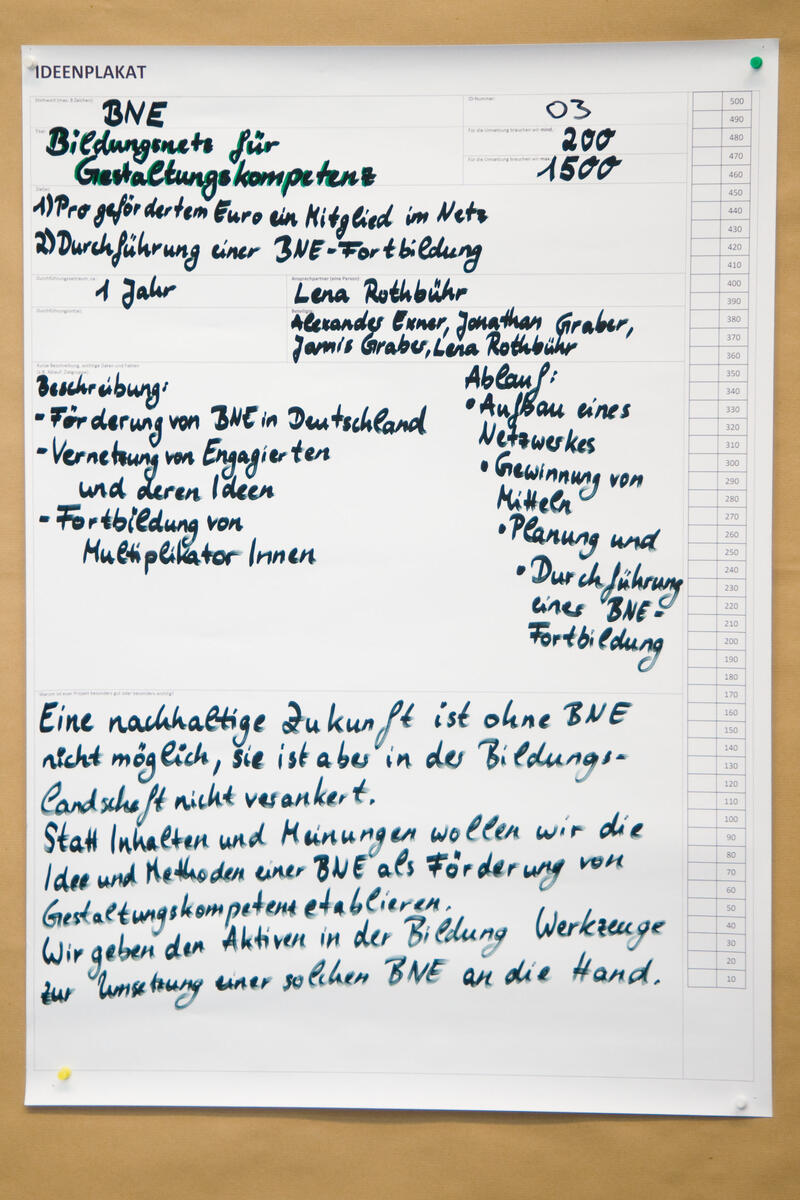 IDEENPLAKAT
Stichwort (max. 8 Zeichen):
BNE
ID-Nummer:
03
Titel:
Bildungsnetz für
Gestaltungskompetenz
Für die Umsetzung brauchen wir mind.
200
Für die Umsetzung brauchen wir max.
1500
Ziel(e):
1) Pro gefördertem Euro ein Mitglied im Netz
2) Durchführung einer BNE-Fortbildung
Durchführungszeitraum, ca.:
1 Jahr
Ansprechpartner (eine Person):
Lena Rothbühr
Durchführungsort(e):
Beteiligte:
Alexander Exner, Jonathan Graber,
Jamis Graber, Lena Rothbühr
Kurze Beschreibung, wichtige Daten und Fakten
(z.B. Ablauf, Zielgruppe):
Beschreibung:
- Förderung von BNE in Deutschland
- Vernetzung von Engagierten
und deren Ideen
- Fortbildung von
MultiplikatorInnen
Ablauf:
• Aufbau eines
Netzwerkes
• Gewinnung von
Mitteln
• Planung und
• Durchführung
einer BNE-
Fortbildung
Warum ist euer Projekt besonders gut oder besonders wichtig?
Eine nachhaltige Zukunft ist ohne BNE
nicht möglich, sie ist aber in der Bildungs-
landschaft nicht verankert.
Statt Inhalten und Meinungen wollen wir die
Idee und Methoden einer BNE als Förderung von
Gestaltungskompetenz etablieren.
Wir geben den Aktiven in der Bildung Werkzeuge
zur Umsetzung einer solchen BNE an die Hand.
500
490
480
470
460
450
440
430
420
410
400
390
380
370
360
350
340
330
320
310
300
290
280
270
260
250
240
230
220
210
200
190
180
170
160
150
140
130
120
110
100
90
80
70
60
50
40
30
20
10